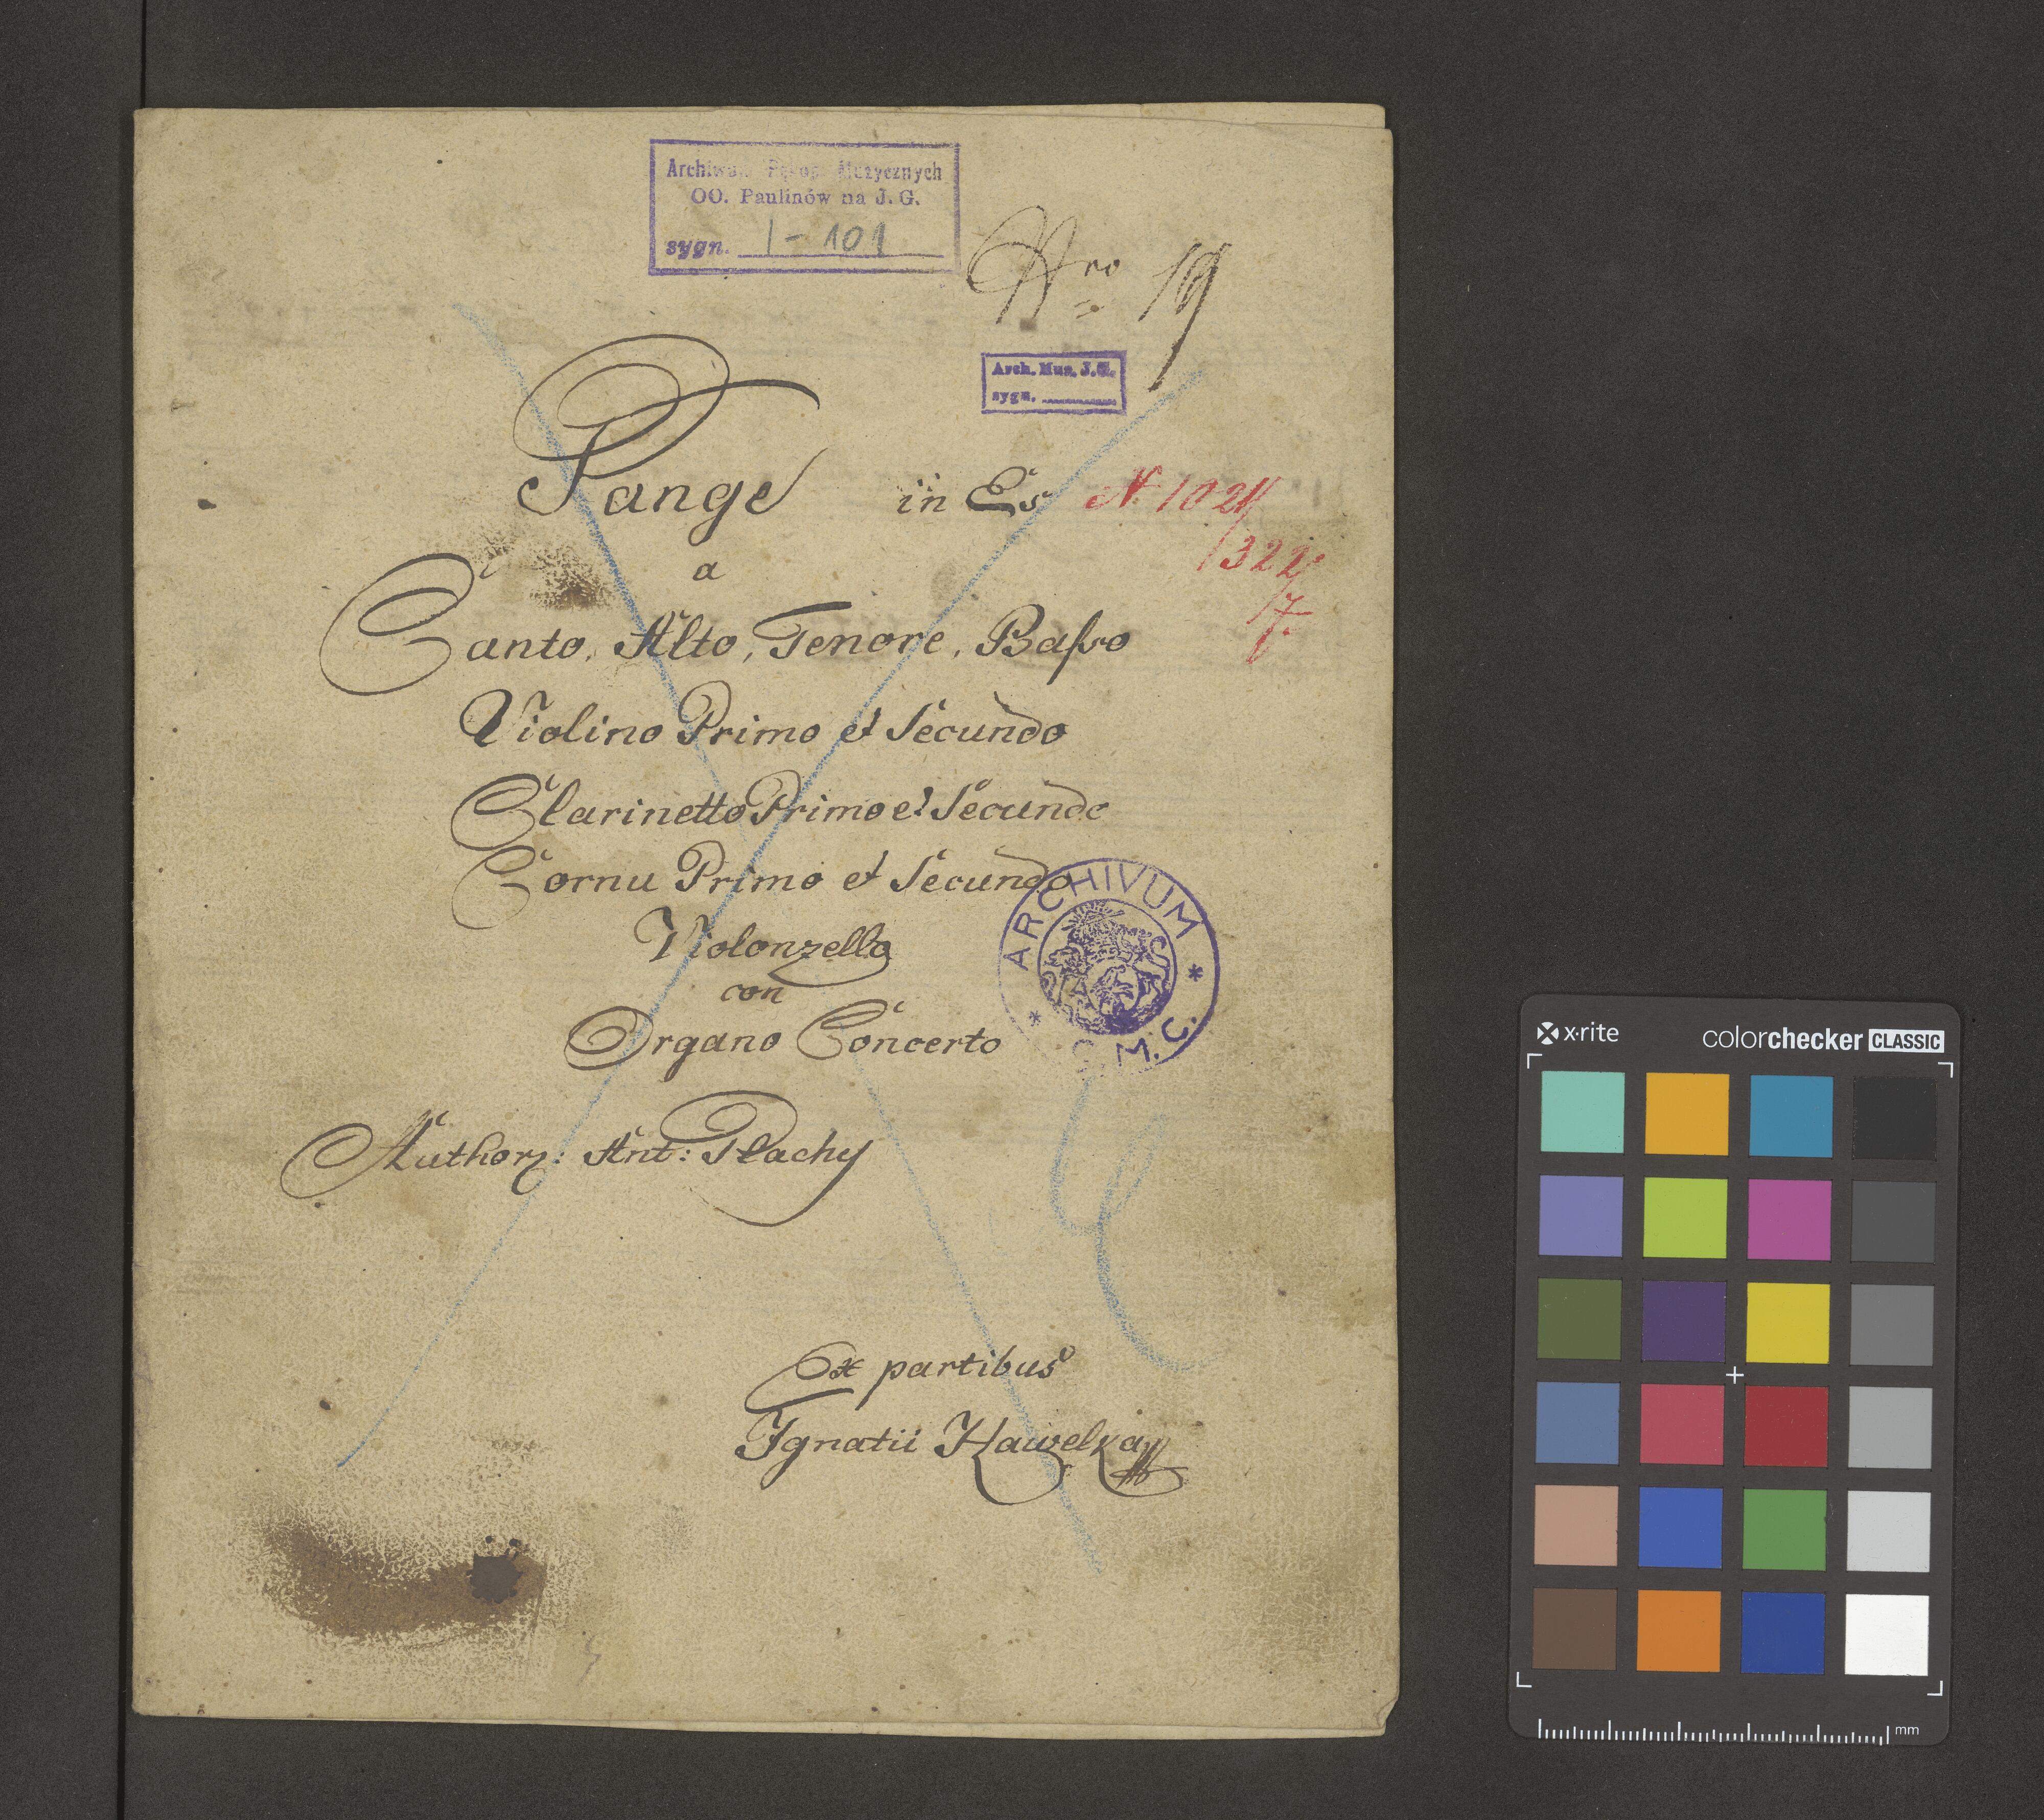 Archiwum Rękop. Muzycznych
OO. Paulinów na J. G.
sygn. I-101
Nro 19
Arch. Mus. J.G.
sygn.
Pange in Es N. 1021/
/322/
7.
a
Canto, Alto, Tenore, Baſso
Violino Primo et Secundo
Clarinetto Primo et Secundo
Cornu Primo et Secundo
Violonzello
con
Organo Concerto
ARCHIVUM
* C.M.C. *
Authore: Ant: Plachy
Ex partibus
Ignatii Hawelka
x·rite
colorchecker CLASSIC
mm